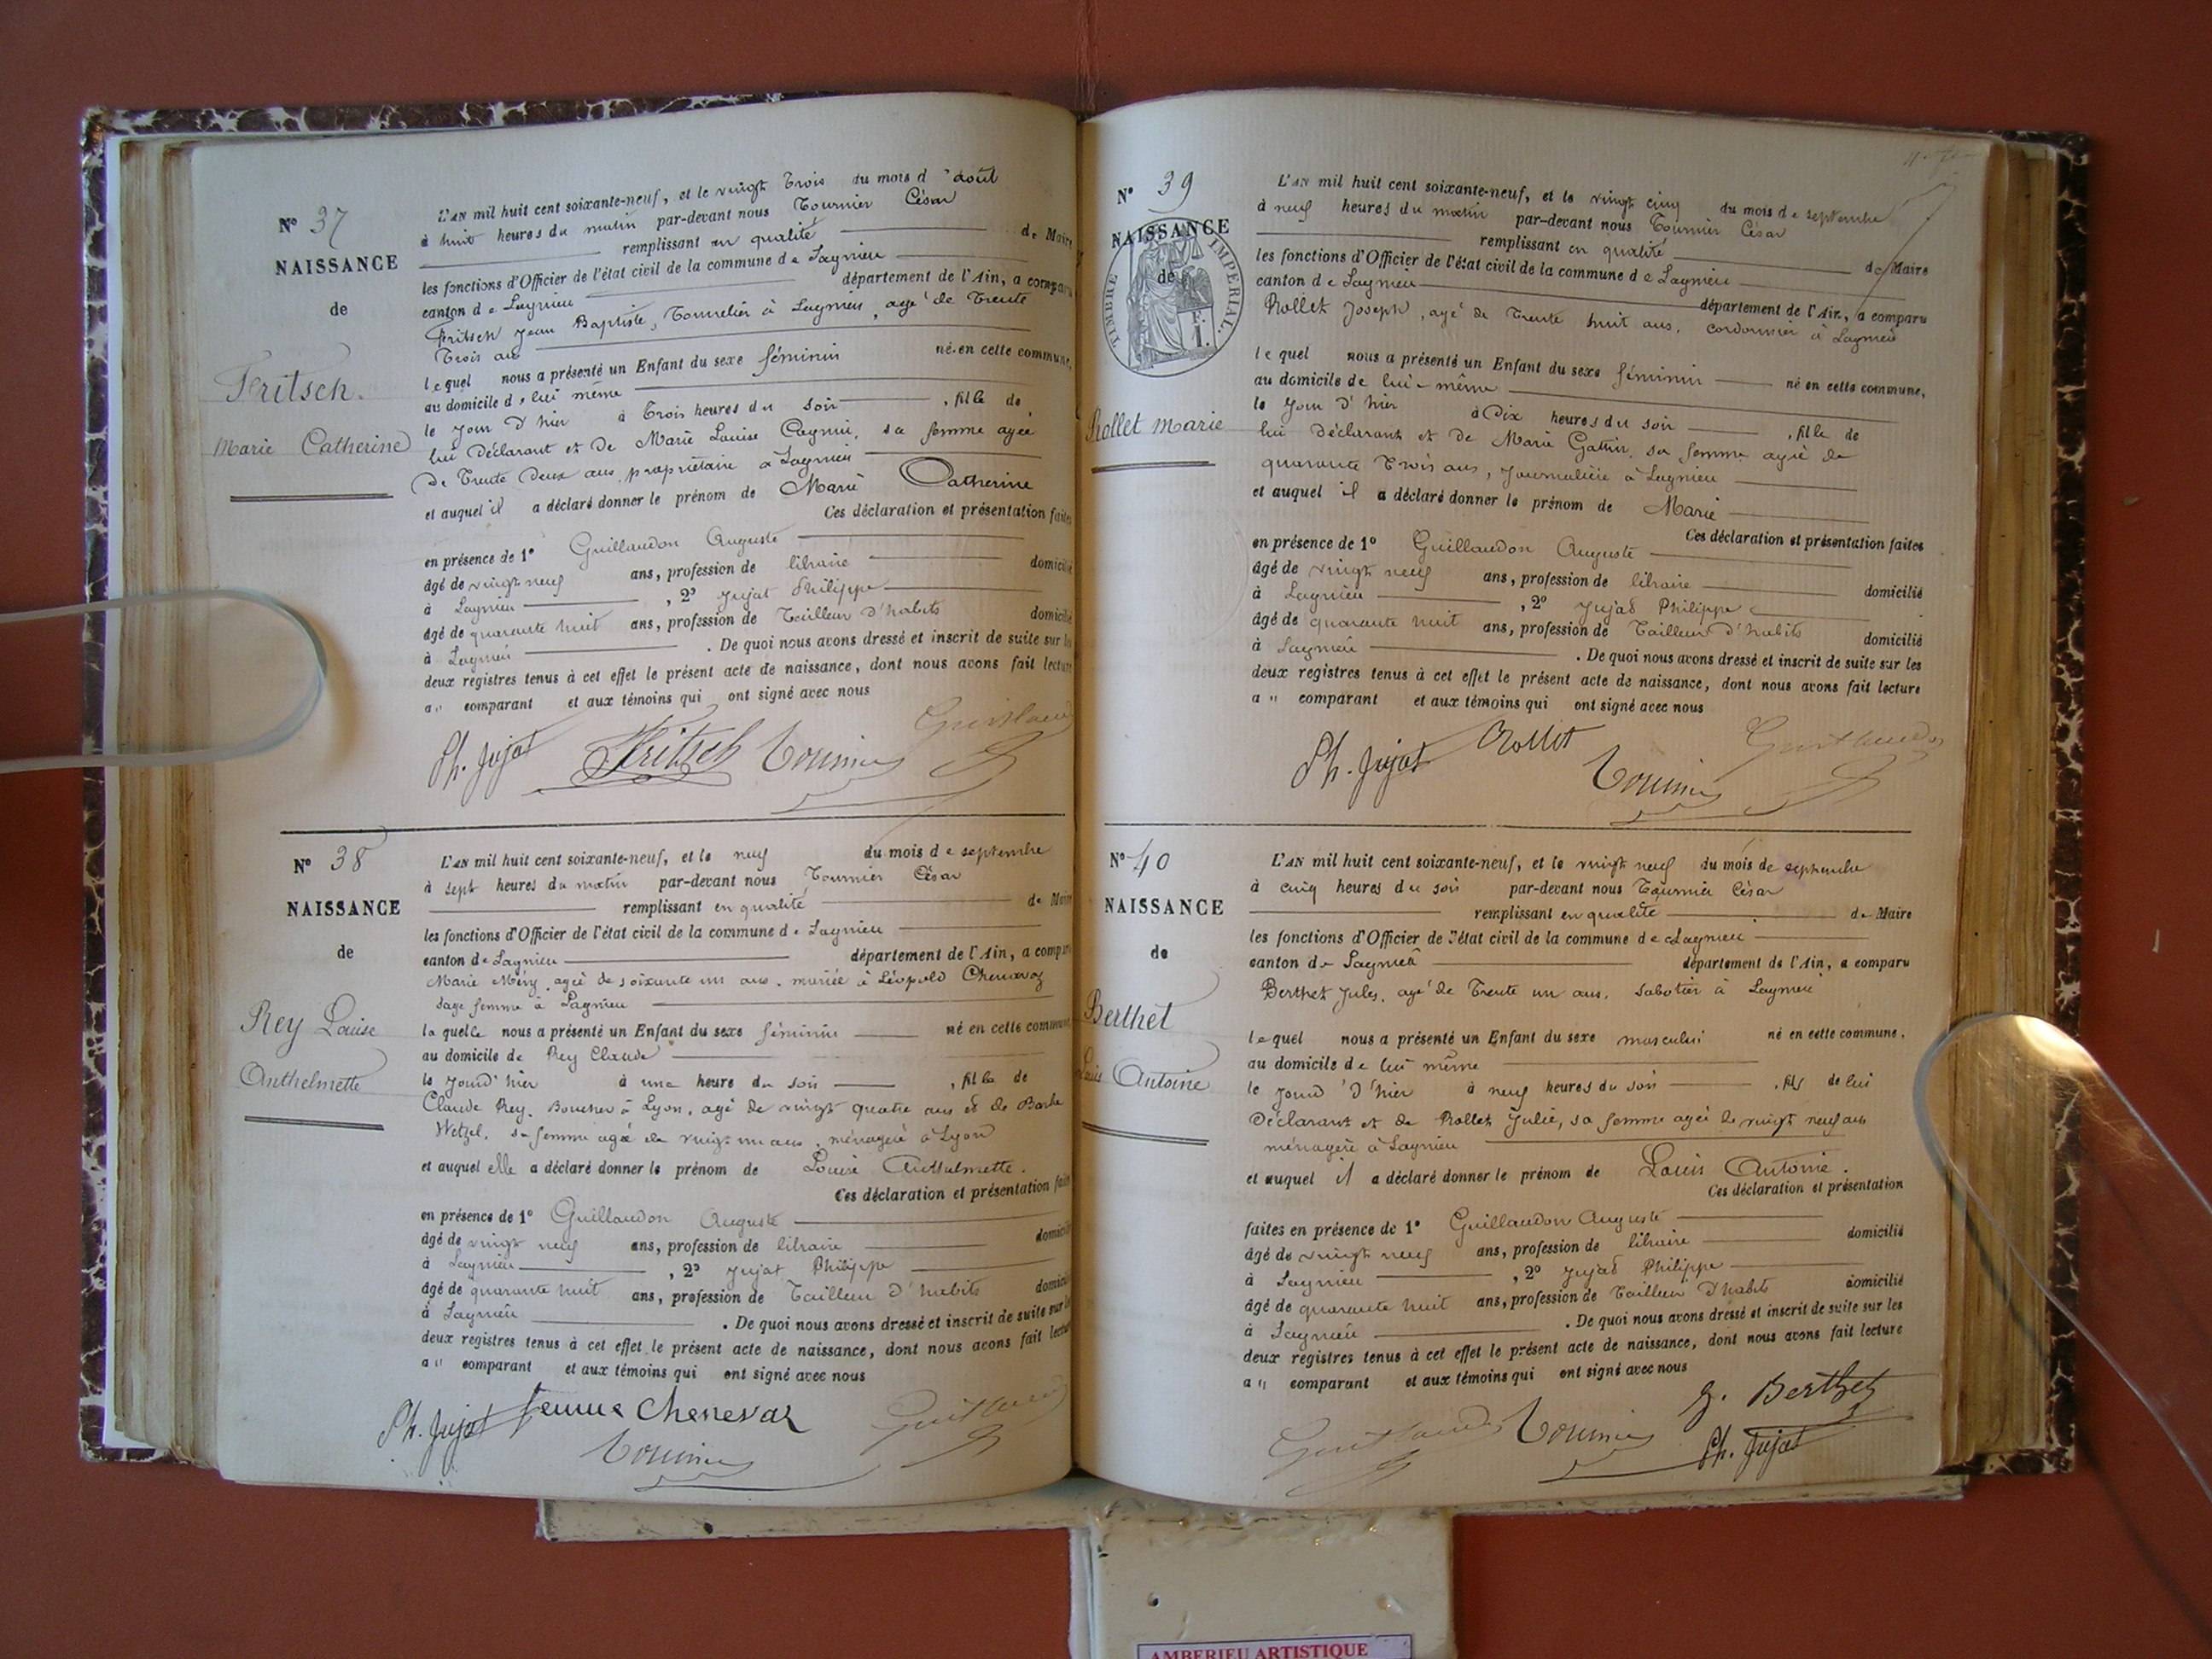 N° 37
NAISSANCE
de
Fritsch.
Marie Catherine
L'AN mil huit cent soixante-neuf, et le vingt Trois du mois d'août
à huit heures du matin par-devant nous Tournier César
remplissant en qualité de Maire
les fonctions d'Officier de l'état civil de la commune de Lagnieu
canton de Lagnieu département de l'Ain, a comparu
Fritsch Jean Baptiste, Tonnelier à Lagnieu, agé de Trente
Trois ans
lequel nous a présenté un Enfant du sexe féminin né en cette commune,
au domicile de lui même
le jour d'hier à Trois heures du soir, fille de
lui Déclarant et de Marie Louise sa femme agée
De Trente Deux ans, propriétaire à Lagnieu
et auquel il a déclaré donner le prénom de Marie Catherine
Ces déclaration et présentation faites
en présence de 1° Guillaudon Auguste
âgé de vingt neuf ans, profession de libraire domicilié
à Lagnieu, 2° Jujat Philippe
âgé de quarante huit ans, profession de Tailleur d'habits domicilié
à Lagnieu. De quoi nous avons dressé et inscrit de suite sur les
deux registres tenus à cet effet le présent acte de naissance, dont nous avons fait lecture
au comparant et aux témoins qui ont signé avec nous
Ph. Jujat Fritsch Tournier Guillaudon
N° 38
NAISSANCE
de
Rey Louise
Anthelmette
L'AN mil huit cent soixante-neuf, et le neuf du mois de septembre
à sept heures du matin par-devant nous Tournier César
remplissant en qualité de Maire
les fonctions d'Officier de l'état civil de la commune de Lagnieu
canton de Lagnieu département de l'Ain, a comparu
Marie Méry, agée de soixante un ans, mariée à Léopold Chenavaz
sage femme à Lagnieu
laquelle nous a présenté un Enfant du sexe féminin né en cette commune
au domicile de Rey Claude
le jour d'hier à une heure du soir, fille de
Claude Rey, Boucher à Lyon, agé de vingt quatre ans et de Barbe
Wetzel, sa femme agée de vingt un ans, ménagère à Lyon
et auquel elle a déclaré donner le prénom de Louise Anthelmette.
Ces déclaration et présentation faites
en présence de 1° Guillaudon Auguste
âgé de vingt neuf ans, profession de libraire domicilié
à Lagnieu, 2° Jujat Philippe
âgé de quarante huit ans, profession de Tailleur d'habits domicilié
à Lagnieu. De quoi nous avons dressé et inscrit de suite sur les
deux registres tenus à cet effet le présent acte de naissance, dont nous avons fait lecture
au comparant et aux témoins qui ont signé avec nous
Ph. Jujat femme Chenevaz Guillaudon
Tournier
N° 39
NAISSANCE
de
TIMBRE IMPERIAL.
Rollet Marie
L'AN mil huit cent soixante-neuf, et le vingt cinq du mois de septembre
à neuf heures du matin par-devant nous Tournier César
remplissant en qualité de Maire
les fonctions d'Officier de l'état civil de la commune de Lagnieu
canton de Lagnieu département de l'Ain, a comparu
Rollet Joseph, agé de Trente huit ans, cordonnier à Lagnieu
lequel nous a présenté un Enfant du sexe féminin né en cette commune,
au domicile de lui-même
le jour d'hier à Dix heures du soir, fille de
lui Déclarant et de Marie Gattin, sa femme agée de
quarante Trois ans, journalière à Lagnieu
et auquel il a déclaré donner le prénom de Marie
Ces déclaration et présentation faites
en présence de 1° Guillaudon Auguste
âgé de vingt neuf ans, profession de libraire domicilié
à Lagnieu, 2° Jujat Philippe
âgé de quarante huit ans, profession de Tailleur d'habits domicilié
à Lagnieu. De quoi nous avons dressé et inscrit de suite sur les
deux registres tenus à cet effet le présent acte de naissance, dont nous avons fait lecture
au comparant et aux témoins qui ont signé avec nous
Ph. Jujat Rollet Guillaudon
Tournier
N° 40
NAISSANCE
de
Berthet
Louis Antoine
L'AN mil huit cent soixante-neuf, et le vingt neuf du mois de septembre
à cinq heures du soir par-devant nous Tournier César
remplissant en qualité de Maire
les fonctions d'Officier de l'état civil de la commune de Lagnieu
canton de Lagnieu département de l'Ain, a comparu
Berthet Jules, agé de Trente un ans, sabotier à Lagnieu
lequel nous a présenté un Enfant du sexe masculin né en cette commune.
au domicile de lui même
le jour d'hier à neuf heures du soir, fils de lui
Déclarant et de Rollet Julie, sa femme agée de vingt neuf ans
ménagère à Lagnieu
et auquel il a déclaré donner le prénom de Louis Antoine.
Ces déclaration et présentation
faites en présence de 1° Guillaudon Auguste
âgé de vingt neuf ans, profession de libraire domicilié
à Lagnieu, 2° Jujat Philippe
âgé de quarante huit ans, profession de Tailleur D'habits domicilié
à Lagnieu. De quoi nous avons dressé et inscrit de suite sur les
deux registres tenus à cet effet le présent acte de naissance, dont nous avons fait lecture
au comparant et aux témoins qui ont signé avec nous
J. Berthet
Guillaudon Tournier Ph. Jujat
AMBERIEU ARTISTIQUE